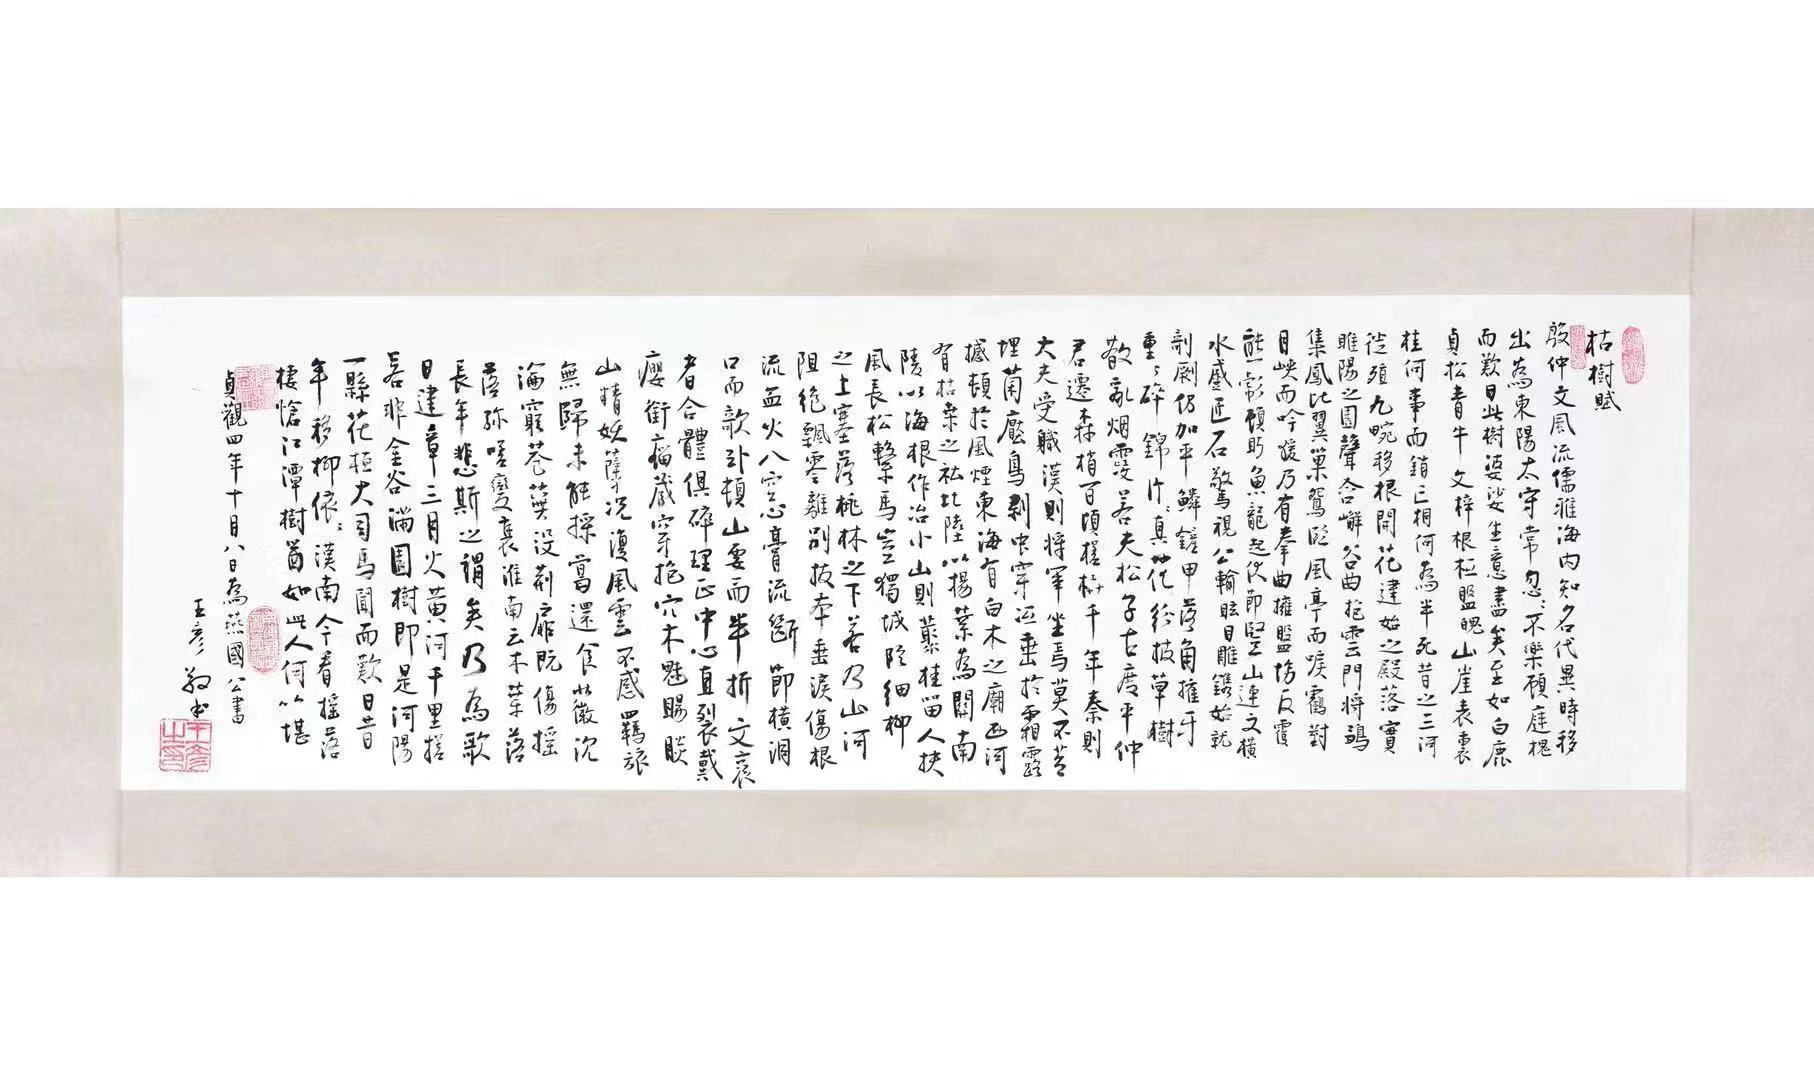 枯樹賦
殷仲文風流儒雅海内知名代異時移
出為東陽太守常忽〻不樂顧庭槐
而歎曰此樹婆娑生意盡矣至如白鹿
貞松青牛文梓根柢盤魄山崖表裏
桂何事而銷亡桐何為半死昔之三河
徙殖九畹移根開花建始之殿落實
睢陽之園聲含嶰谷曲抱雲門將鶵
集鳳比翼巢鴛臨風亭而唳鶴對
月峽而吟猨乃有拳曲擁腫盤坳反覆
熊彪顧盻魚龍起伏節竪山連文橫
水蹙匠石驚視公輸眩目雕鐫始就
剞劂仍加平鱗鏟甲落角摧牙
重〻碎錦片〻真花紛披草樹
散亂烟霞若夫松子古度平仲
君遷森梢百頃槎枿千年秦則
大夫受職漢則將軍坐焉莫不苔
埋菌壓鳥剥虫穿或垂於霜露
撼頓於風煙東海有白木之廟西河
有枯桒之社北陸以揚葉為關南
陵以海根作冶小山則藂桂留人扶
風長松繫馬豈獨城臨細柳
之上塞落桃林之下若乃山河
阻絶飄零離别拔本垂淚傷根
流血火入空心膏流斷節横洞
口而歌卧頓山要而半折文衺
者合體俱碎理正中心直裂戴
癭銜瘤藏穿抱穴木魅睗睒
山精妖孽况復風雲不感羈旅
無歸未能採葛還食薇沉
淪窮巷蕪没荆扉既傷搖
落弥嗟變衰淮南云木葉落
長年悲斯之謂矣乃為歌
曰建章三月火黄河千里槎
若非金谷滿園樹即是河陽
一縣花桓大司馬聞而歎曰昔
年移柳依〻漢南今看搖落
悽愴江潭樹猶如此人何以堪
貞觀四年十月八日為燕國公書
王彦敬书